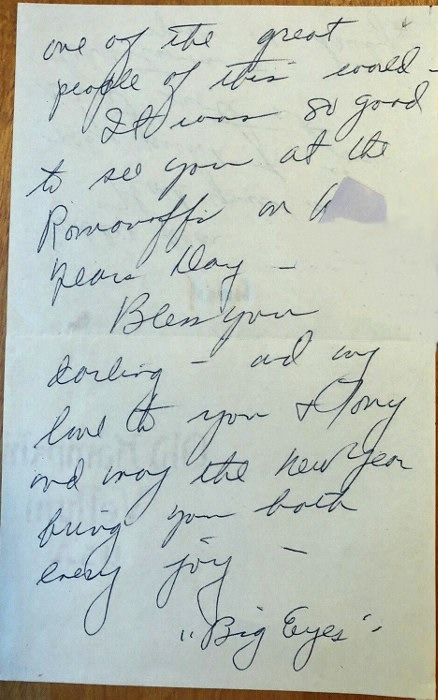 one of the great
people of this world -
It was so good
to see you at the
Romonoffs on
Years Day -
Bless you
darling - and my
love to you & Tony
and may the New Year
bring you both
every joy -
"Big Eyes"